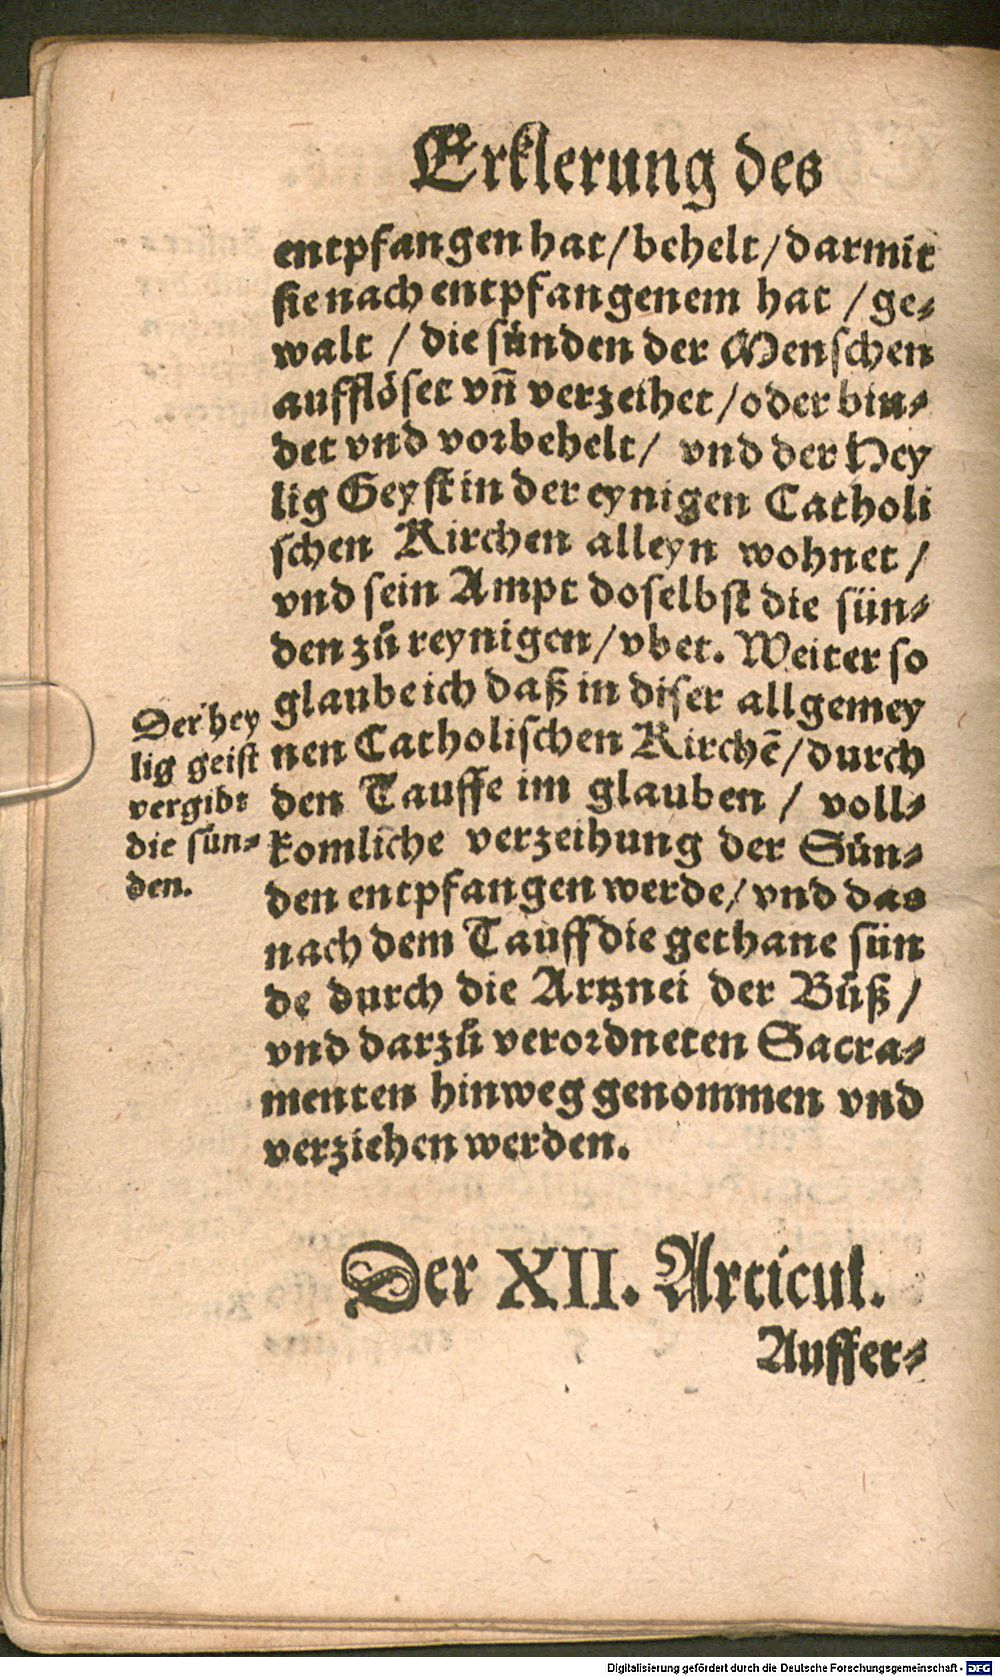 Erklerung des
entpfangen hat/behelt/darmit
sie nach entpfangenem hat /ge⸗
walt / die sünden der Menschen
aufflöset vñ verzeihet/oder bin⸗
det vnd vorbehelt/ vnd der Hey
lig Geyst in der eynigen Catholi
schen Kirchen alleyn wohnet /
vnd sein Ampt doselbst die sün⸗
den zů reynigen/vbet. Weiter so
glaube ich daß in diser allgemey
nen Catholischen Kirchẽ/durch
den Tauffe im glauben / voll⸗
komliche verzeihung der Sün⸗
den entpfangen werde/vnd das
nach dem Tauff die gethane sün
de durch die Artznei der Bůß /
vnd darzů verordneten Sacra⸗
menten hinweg genommen vnd
verziehen werden.
Der hey
lig geist
vergibt
die sün⸗
den.
Der XII. Articul.
Auffer⸗
Digitalisierung gefördert durch die Deutsche Forschungsgemeinschaft - DFG